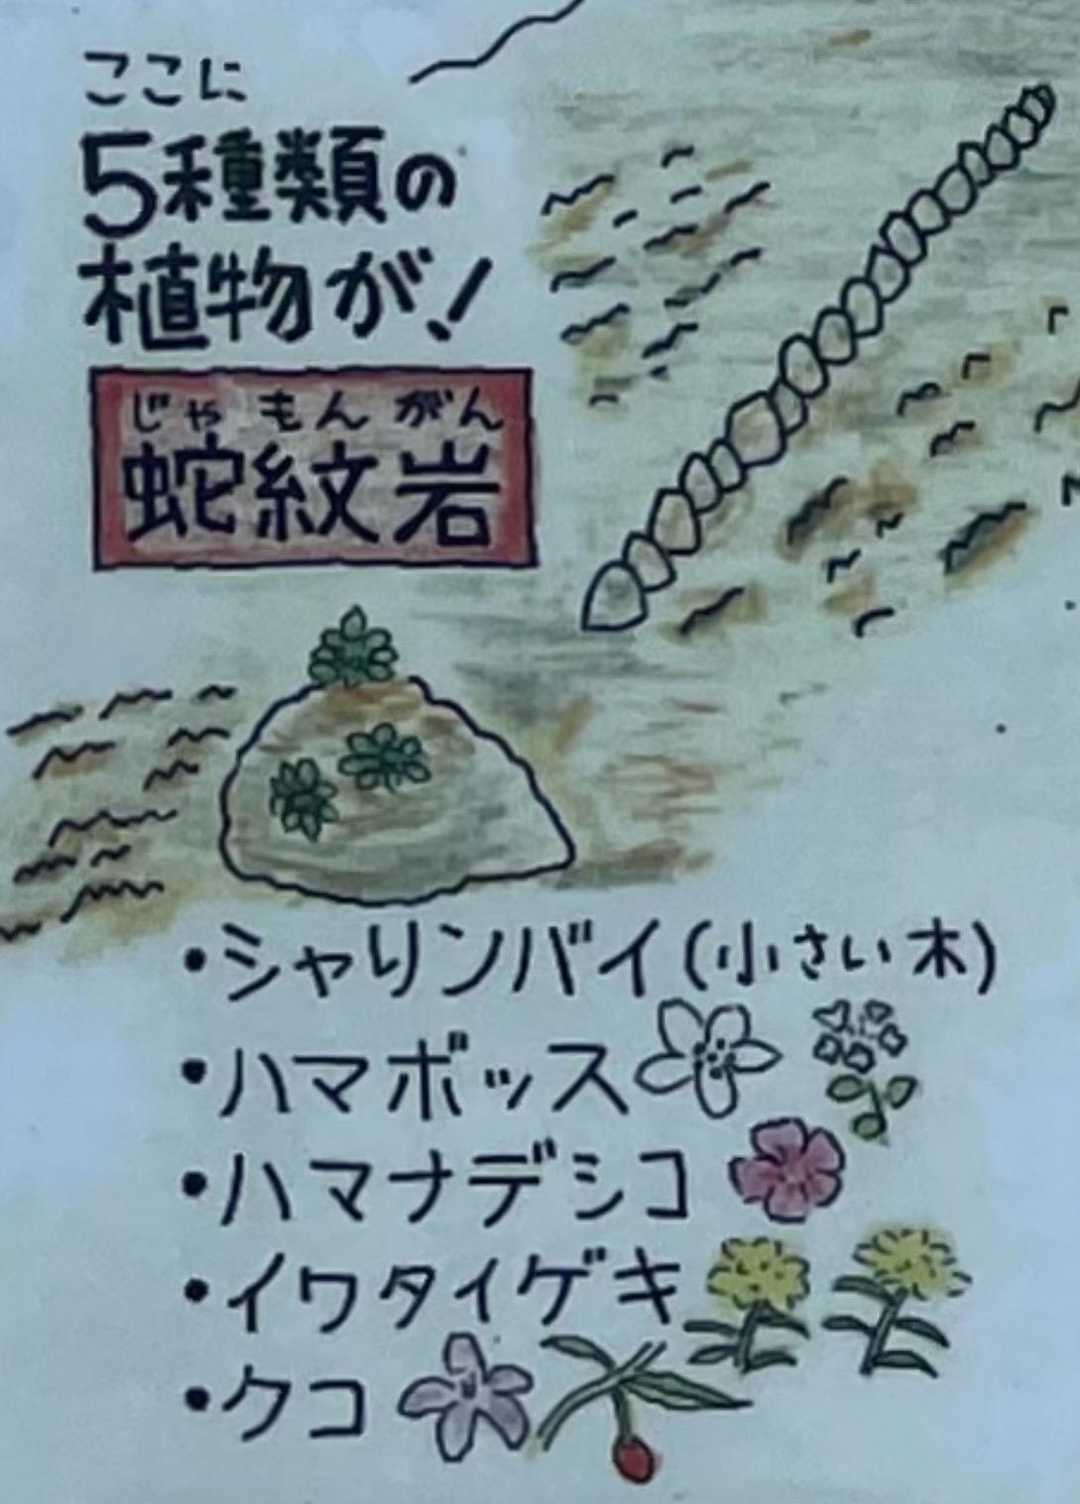 ここに
5種類の
植物が!
じゃもんがん
蛇紋岩
・シャリンバイ(小さい木)
・ハマボッス
・ハマナデシコ
・イワタイゲキ
・クコ